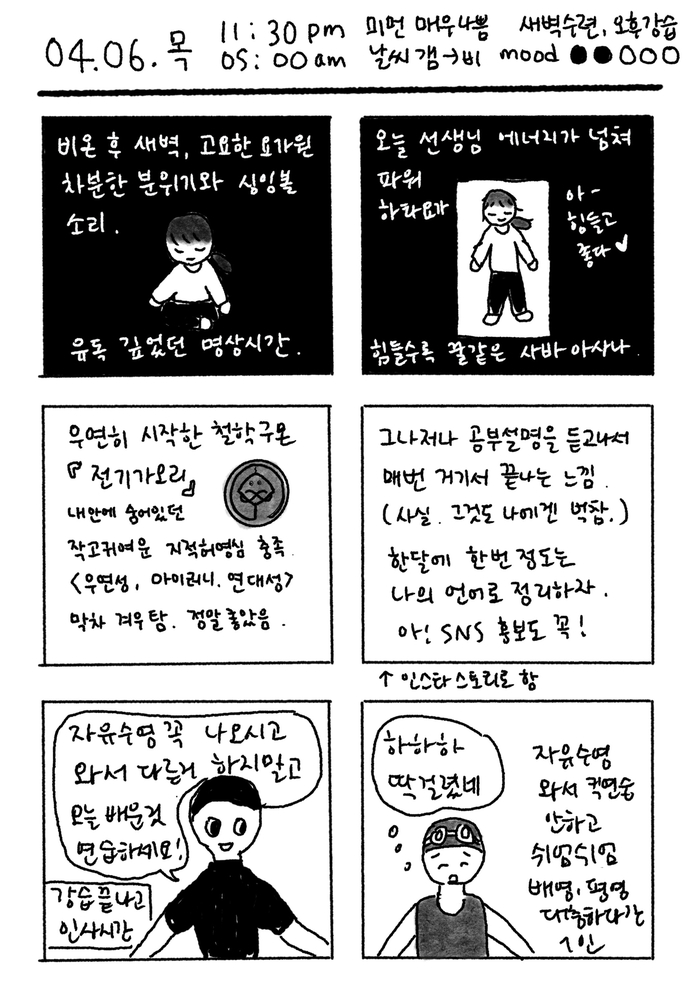 04.06.목
11:30 pm
05:00 am
미먼 매우나쁨 새벽수련, 오후강습
날씨 갬→비 mood ●●○○○
비온 후 새벽, 고요한 요가원
차분한 분위기와 싱잉볼
소리.
유독 깊었던 명상시간.
오늘 선생님 에너지가 넘쳐
파워
하타요가
아~
힘들고
좋다♥
힘들수록 꿀같은 사바아사나.
우연히 시작한 철학구몬
『전기가오리』
내안에 숨어있던
작고귀여운 지적허영심 충족.
<우연성, 아이러니, 연대성>
막차 겨우탐. 정말좋았음.
그나저나 공부설명을 듣고나서
매번 거기서 끝나는 느낌.
(사실. 그것도 나에겐 벅참.)
한달에 한번 정도는
나의 언어로 정리하자.
아! SNS 홍보도 꼭!
↑ 인스타스토리로 함
자유수영 꼭 나오시고
와서 다른거 하지말고
오늘 배운것
연습하세요!
강습끝나고
인사시간
하하하
딱걸렸네
자유수영
와서 킥연습
안하고
쉬엄쉬엄
배영, 평영
대충하다간
1인